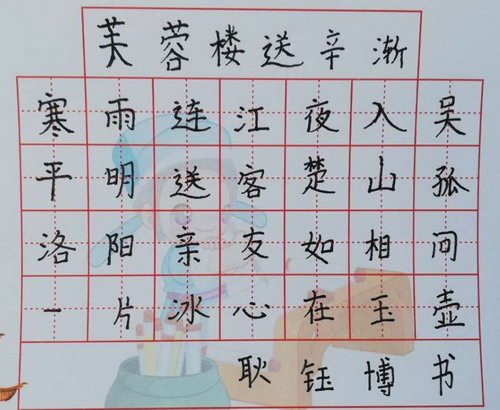 芙蓉楼送辛渐
寒雨连江夜入吴
平明送客楚山孤
洛阳亲友如相问
一片冰心在玉壶
耿钰博书